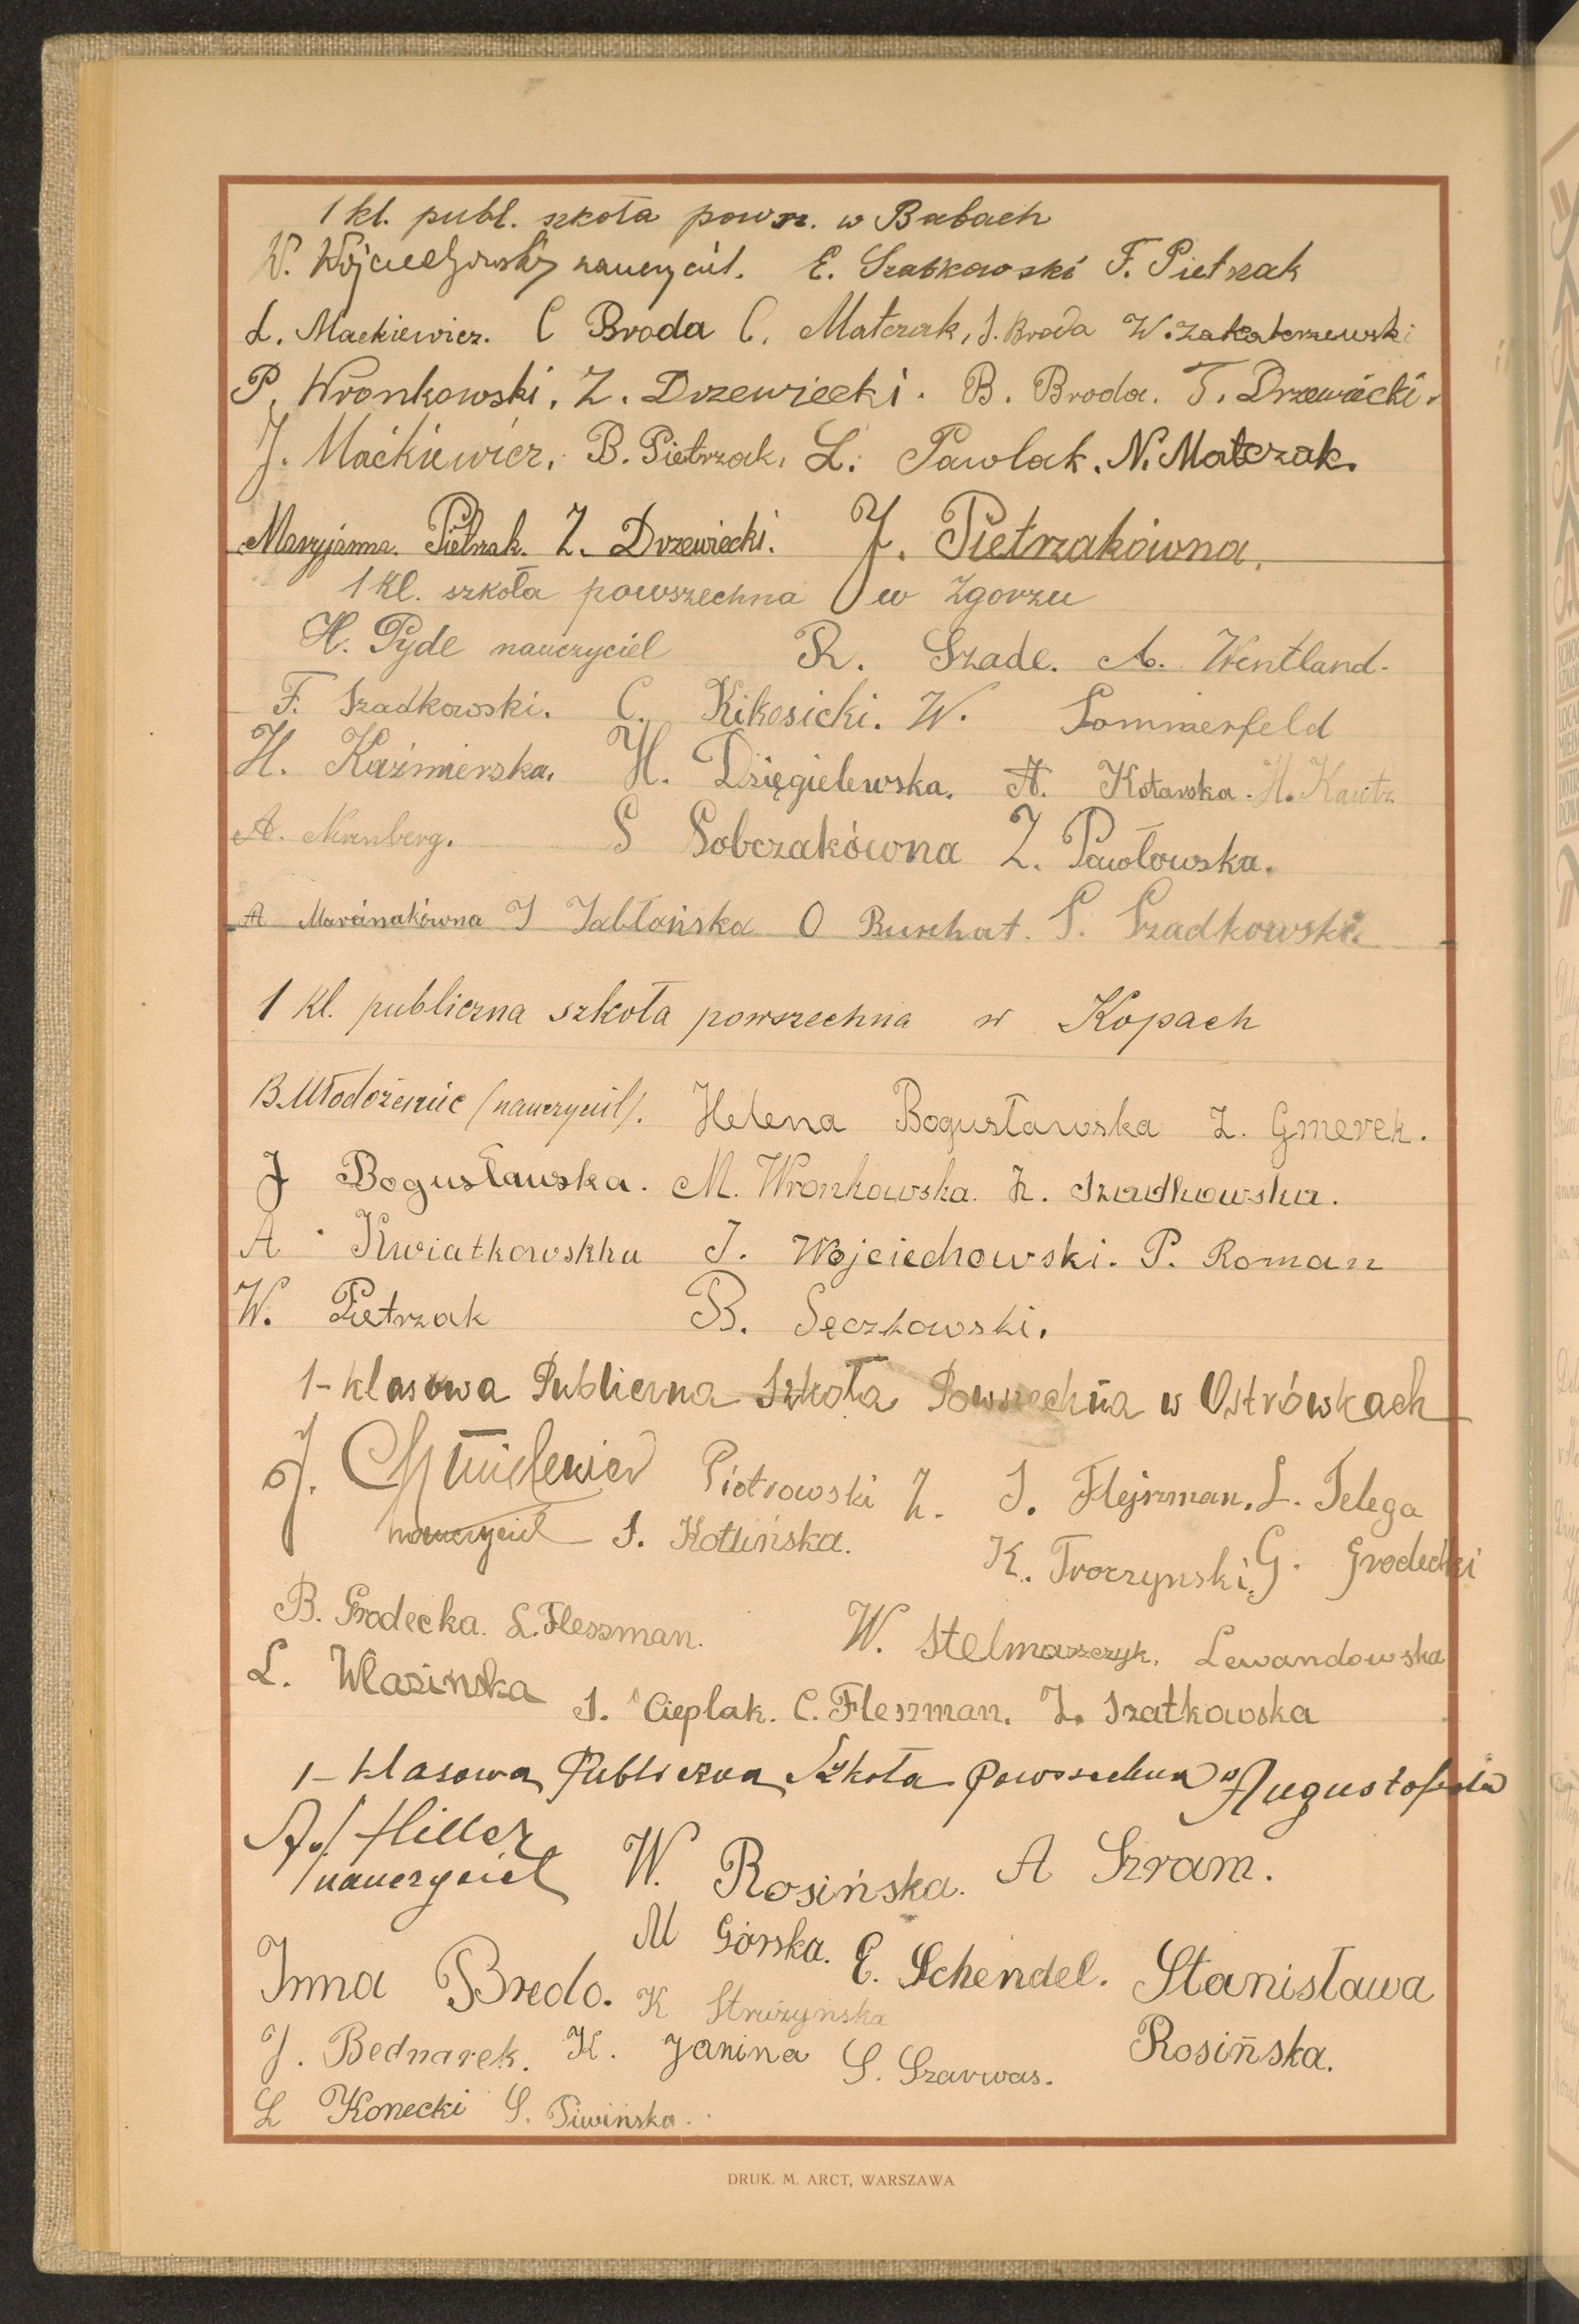 1 kl. publ. szkoła powsz. w Babach
W. Wojciechowski nauczyciel. E. Szatkowski F. Pietrzak
L. Mackiewicz. C Broda C. Matczak, S. Broda W. Zakrzewski
P. Wronkowski. Z. Drzewiecki. B. Broda. T. Drzewiecki.
J. Maćkiewicz. B. Pietrzak. L. Pawlak. N. Matczak.
Maryjanna. Pietrzak. Z. Drzewiecki. J. Pietrzakówna.
1 kl. szkoła powszechna w Zgorzu
H. Pyde nauczyciel R. Szade. A. Wentland.
F. Szadkowski. C. Kikosicki. W. Sommerfeld
H. Kaźmierska. H. Dzięgielewska. A. Kotarska. H. Kautz
A. Nirenberg. S Sobczakówna Z. Pawołowska.
A Marcinakówna J Jabłońska O Burchat. S. Szadkowski.
1 kl. publiczna szkoła powszechna w Kopach
B. Młodożeniec (nauczyciel). Helena Bogusławska Z. Gmerek.
J Bogusławska. M. Wronkowska. Z. Szadkowska.
A. Kwiatkowskka J. Wojciechowski. P. Roman
W. Pietrzak B. Sęczkowski.
1-klasowa Publiczna Szkoła Powszechna w Ostrówkach
J. Chmielewicz Piotrowski Z. S. Flejszman. L. Telega
nauczyciel S. Kotlińska. K. Troczynski. G. Grodecki
B. Grodecka. L. Fleszman. W. Stelmaszczyk. Lewandowska
L. Wlazinska S. Cieplak. C. Fleszman. Z. Szatkowska
1-klasowa Publiczna Szkoła Powszechna w Augustofie
A. Hiller
nauczyciel W. Rosińska. A Szram.
M Górska. E. Schendel. Stanisława
Irma Bredo. K Strużyńska Rosińska.
J. Bednarek. K. Janina S. Szarwas.
L Konecki S. Piwińska.
DRUK. M. ARCT, WARSZAWA